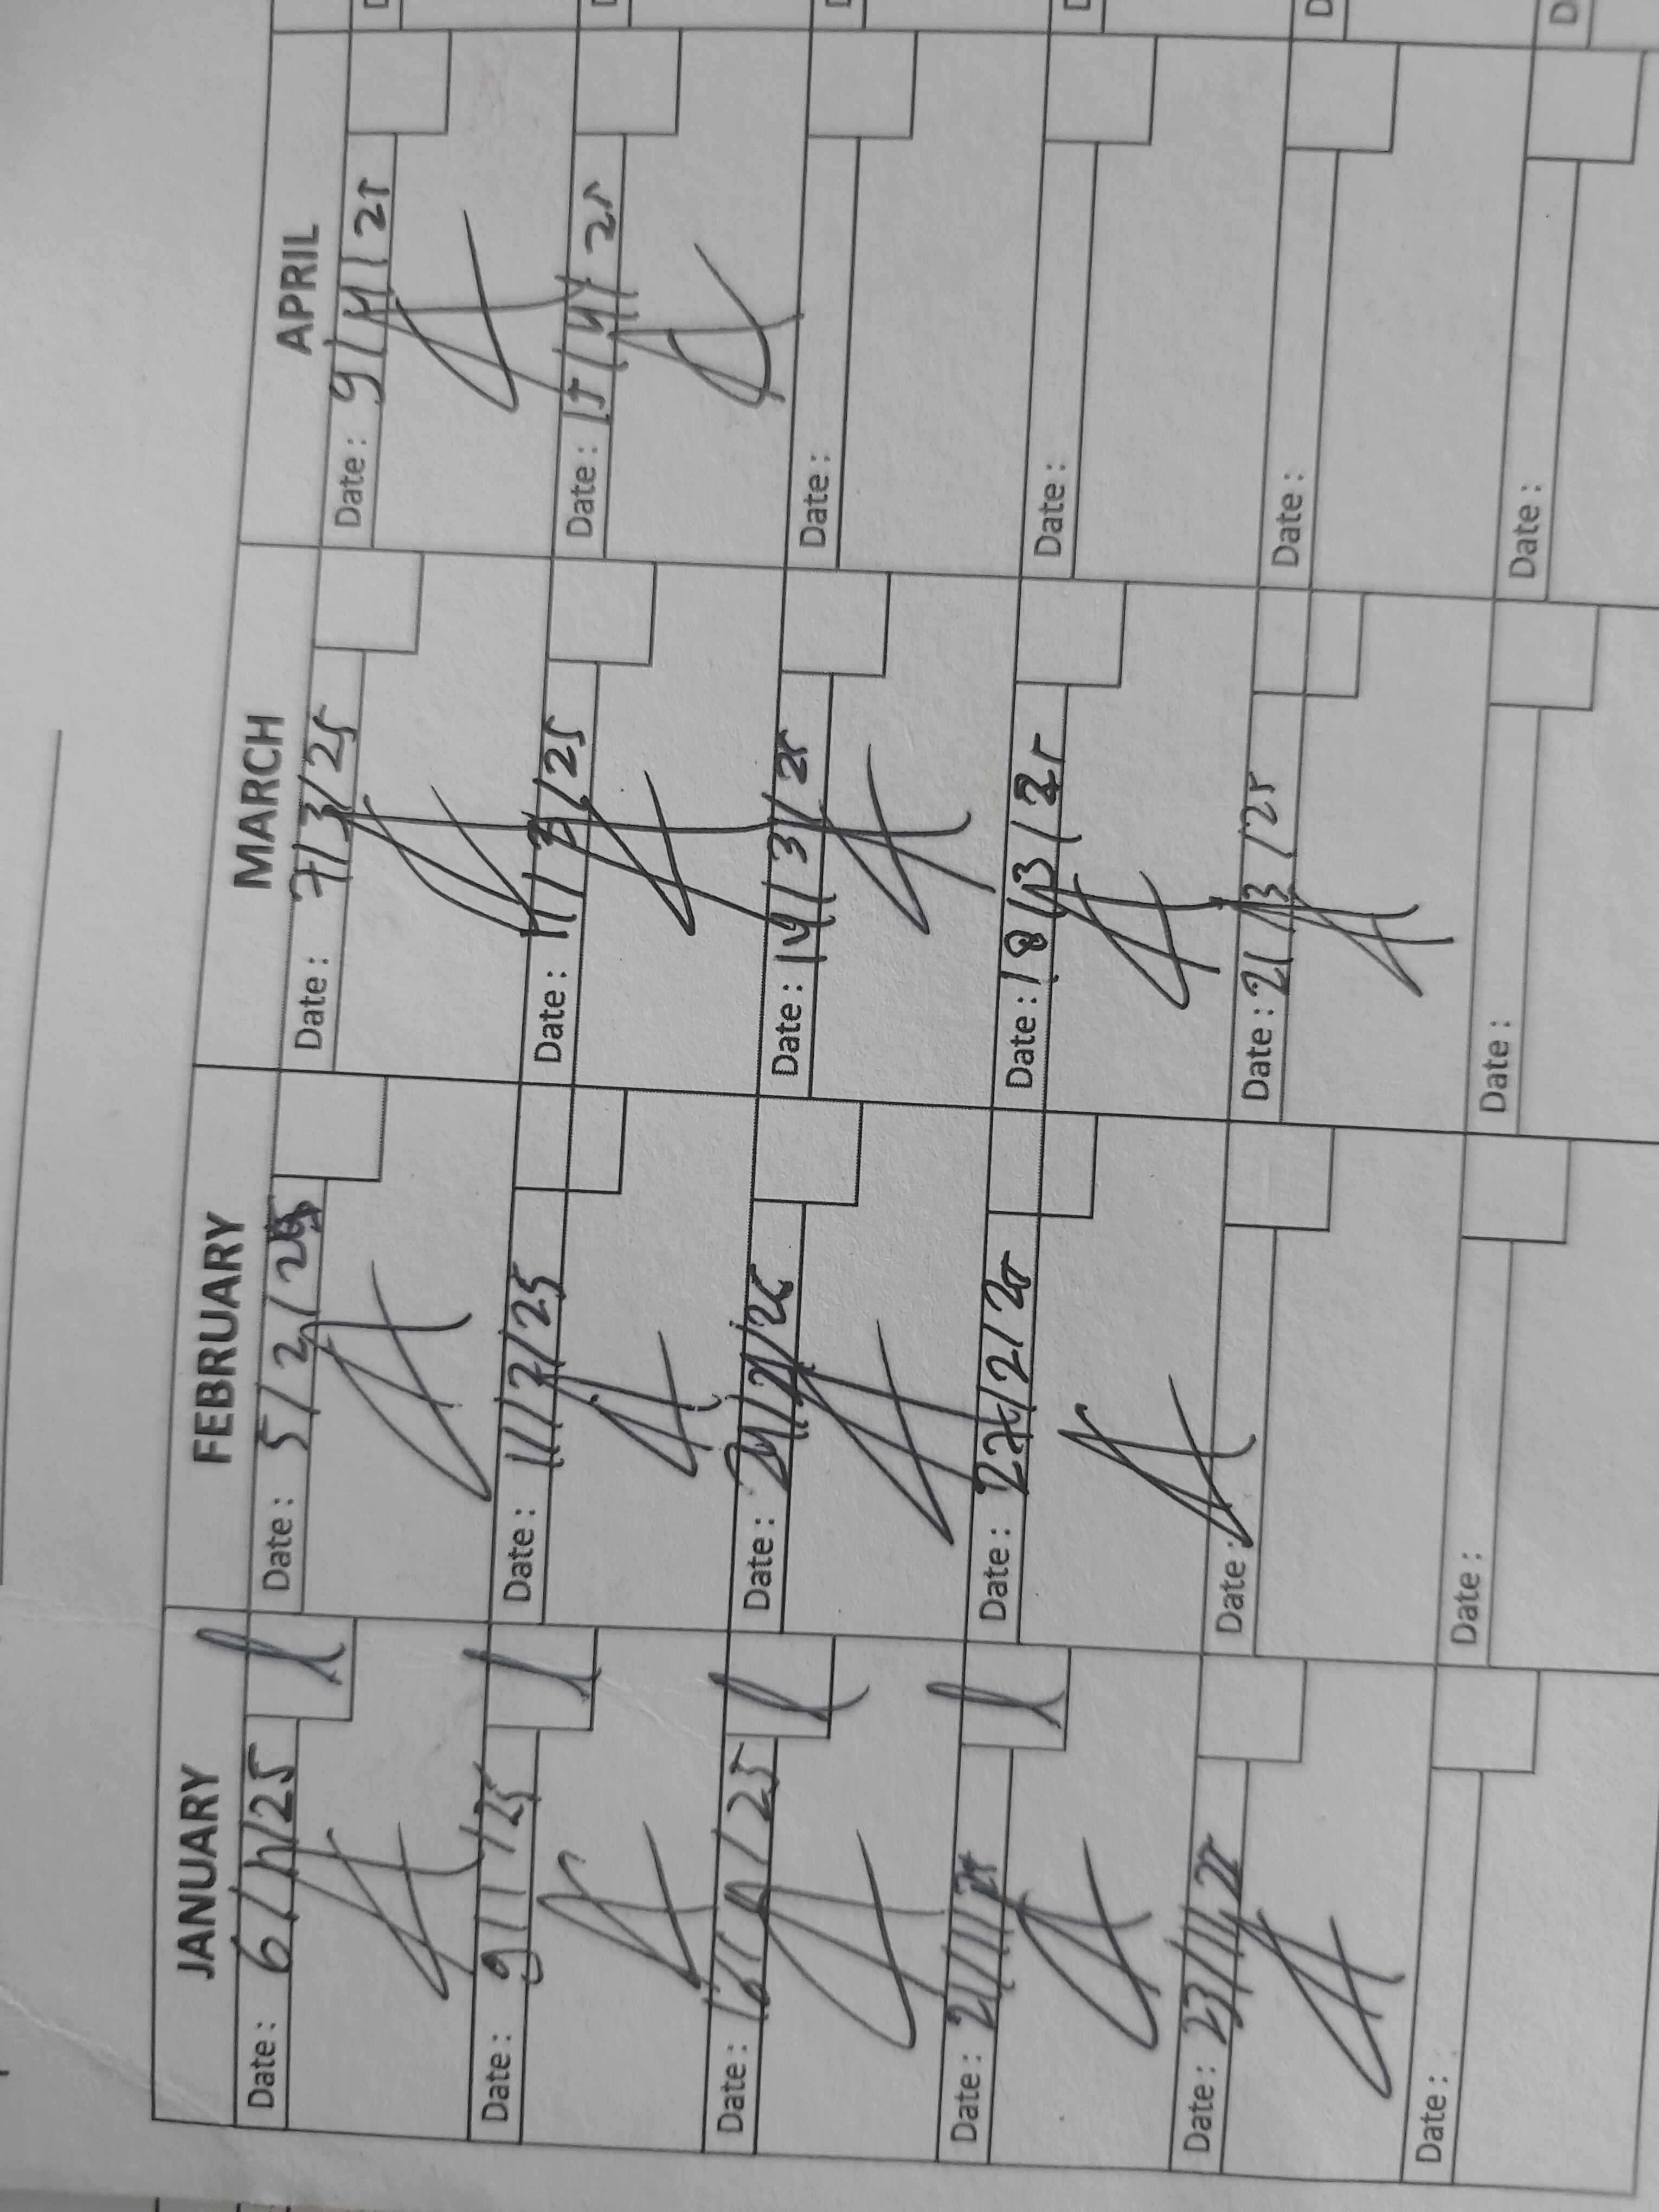 JANUARY FEBRUARY MARCH APRIL
Date: 6/1/25 Date: 5/2/25 Date: 7/3/25 Date: 9/4/25
Date: 9/1/25 Date: 11/2/25 Date: 11/3/25 Date: 15/4/25
Date: 16/1/25 Date: Date: 14/3/25 Date:
Date: 21/1/25 Date: 27/2/25 Date: 18/3/25 Date:
Date: 23/1/25 Date: Date: 21/3/25 Date:
Date: Date: Date: Date: